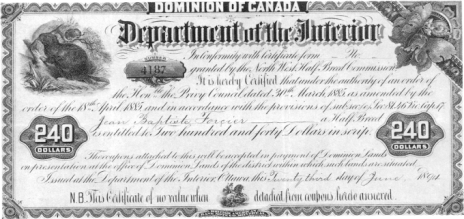 DOMINION OF CANADA
Department of the Interior
In conformity with Certificate form No
NUMBER
4187
granted by the North West Half Breed Commission
It is hereby Certified that under the authority of an order of
the Honble the Privy Council dated 30th March 1885 as amended by the
order of the 18th April 1885 and in accordance with the provisions of sub
Jean Baptiste a Half Breed
240 is entitled to Two hundred and forty Dollars in scrip. 240
DOLLARS DOLLARS
The coupons attached to this will be accepted in payment of Dominion Lands
on presentation at the office of Dominion Lands of the district within which such lands are situated.
Issued at the Department of the Interior Ottawa this Twenty third day of June
N.B. This Certificate of no value when detached from coupons hereto annexed.